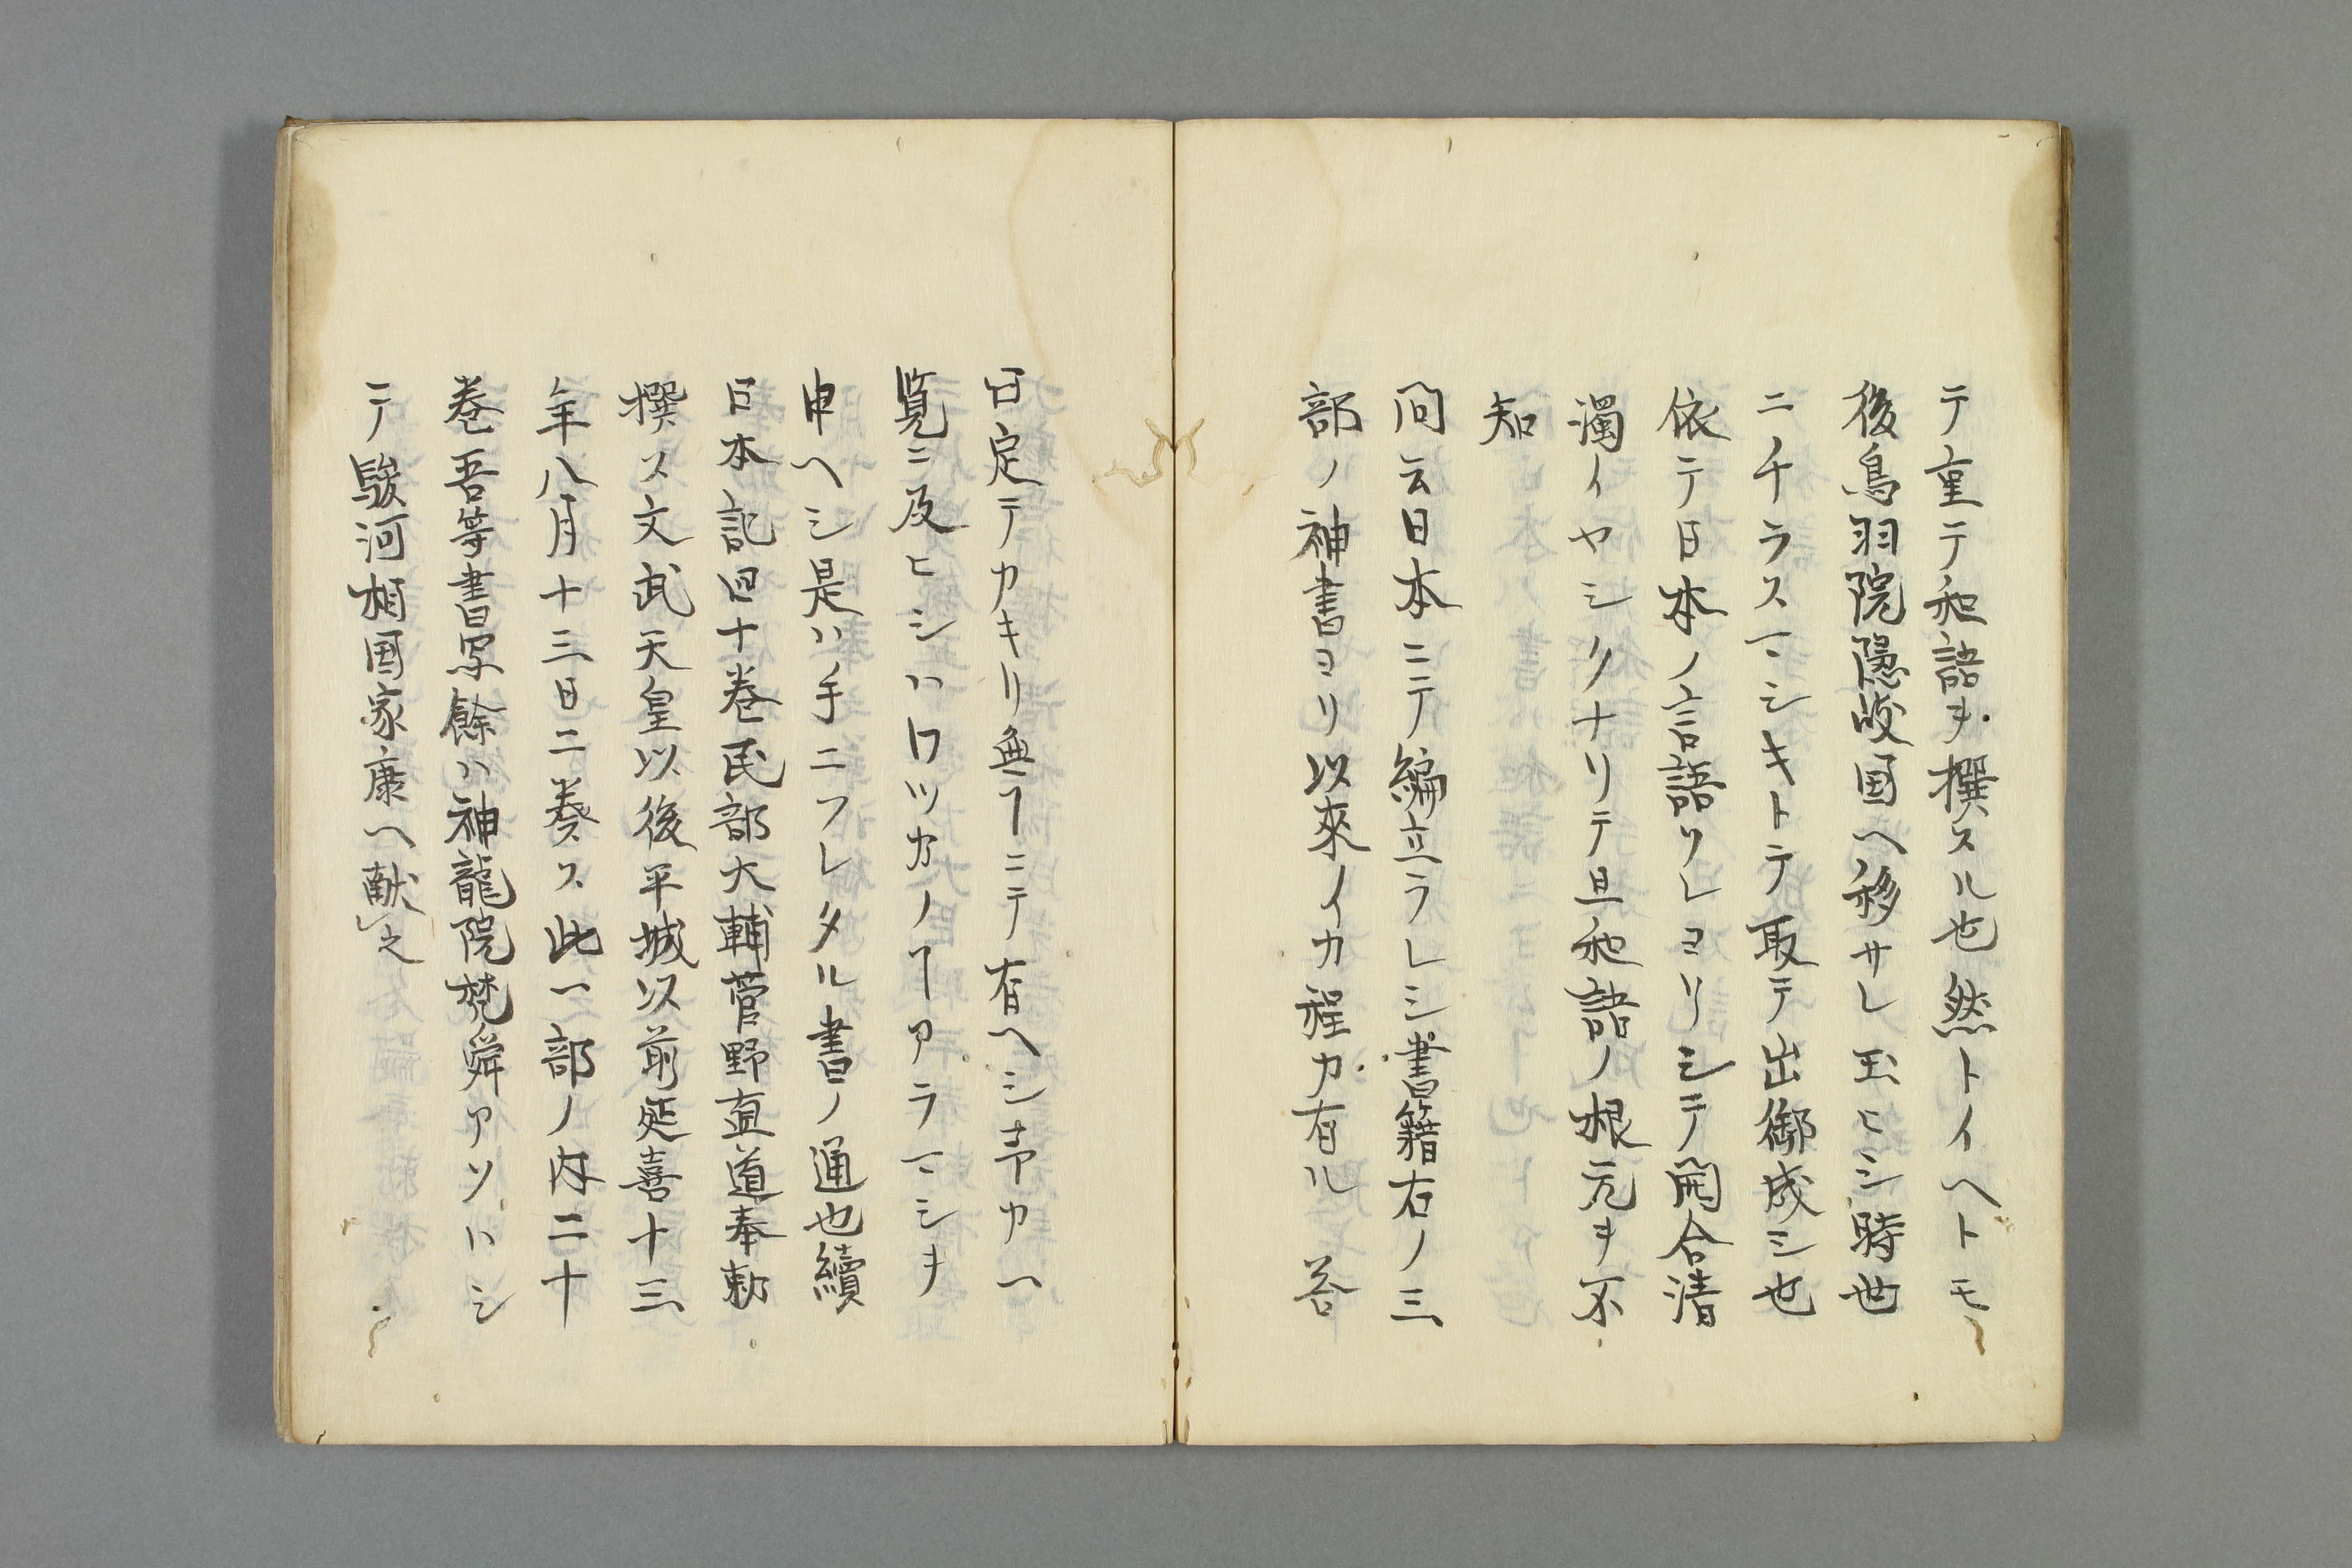 テ重テ和語ヲ撰スル也然トイヘトモ
後鳥羽院隠岐国ヘ移サレ玉ヒシ時世
ニチラスマシキトテ取テ出御成シ也
依テ日本ノ言語ソレヨリシテ開合清
濁イヤシクナリテ且和語ノ根元ヲ不
知
問云日本ニテ編立ラレシ書籍右ノ三
部ノ神書ヨリ以來イカ程カ有ル 答
曰定テカキリ無ヿニテ有ヘシ予カ一
覧ニ及ヒシハワツカノヿアラマシヲ
申ヘシ是ハ手ニフレタル書ノ通也續
日本記四十巻民部大輔菅野直道奉勅
撰ス文武天皇以後平城以前延喜十三
年八月十三日ニ奏ス此一部ノ内二十
巻吾等書写餘ハ神龍院梵舜アソハシ
テ駿河相国家康ヘ献之